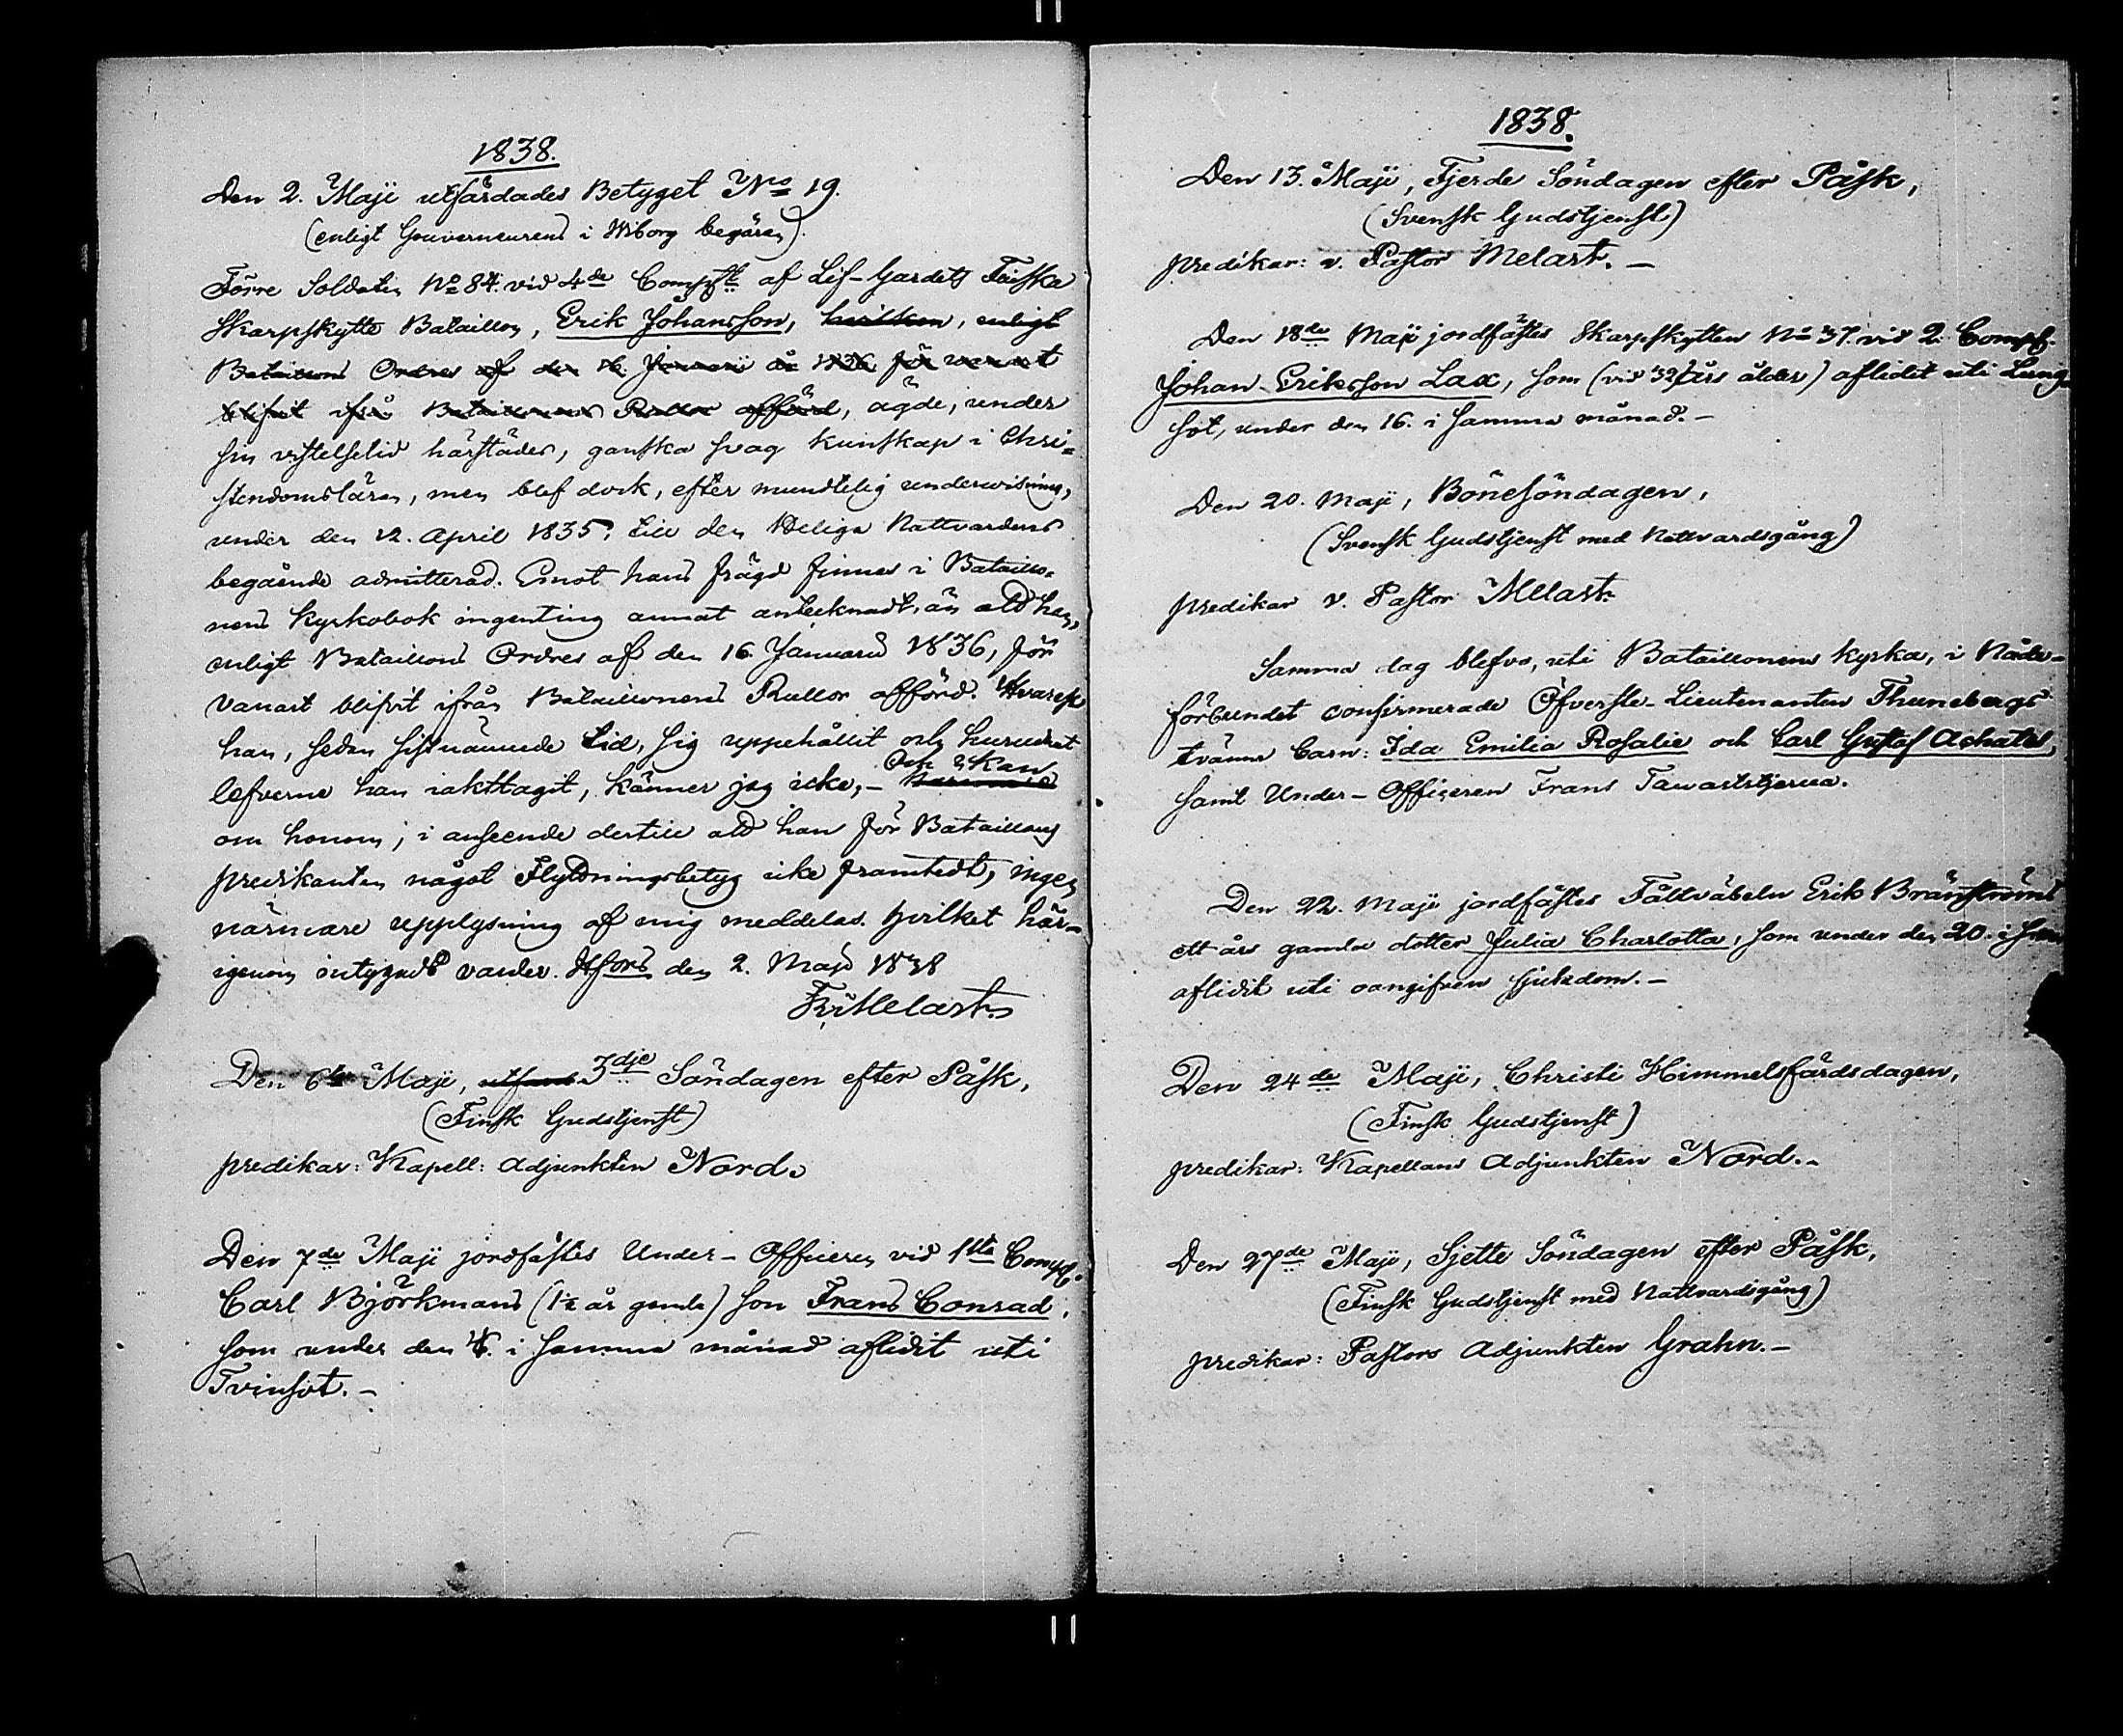 1838.
Den 2. Maji utfärdades Betyget No 19.
(enligt Gouverneurens i Wiborg begäran)
Förre Soldaten No 84. vid 4de Comp. af Lif-Gardets Finska
Skarpskytte Bataillon, Erik Johansson, hvilken, enligt
Bataillons Ordres af den 16. Januarii år 1836 för vanart
blifvit ifrån Bataillonens Rullor afförd, ägde, under
sin vistelsetid härstädes, ganska svag kunskap i Chri=
stendomsläran, men blef dock, efter mundtelig underwisning,
under den 12. April 1835, till den Heliga Nattvardens
begående admitterad. Emot hans frägd finnes i Bataillo-
nens Kyrkobok ingenting annat antecknadt, än att han,
enligt Bataillons Ordres af den 16. Januarii 1836, för
vanart blifvit ifrån Bataillonens Rullor afförd. Hvarest
han, sedan sistnämnde tid, sig uppehållit och hurudant
Och kan
lefverne han iakttagit, känner jag icke, –
om honom, i anseende dertill att han för Bataillons
predikanten något Flyttningsbetyg icke framtedt, ingen
närmare upplysning af mig meddelas. Hvilket här-
igenom intygadt varder. Hfors den 2. Maji 1838
Fr: Melart.
Den 6te Maji, utfard 3dje Söndagen efter Påsk,
(Finsk Gudstjenst)
predikar: Kapell: Adjunkten Nord.
Den 7de Maji jordfästes Under-Officeren vid 1sta Comp.
Carl Björkmans (1½ år gamla) son Frans Conrad,
som under den 4. i samma månad aflidit uti
Tvinsot. –
1838.
Den 13. Maji, Fjerde Söndagen efter Påsk,
(Svensk Gudstjenst)
predikar: v. Pastor Melart. –
Den 18de Maji jordfästes Skarpskytten No 37. vid 2. Comp.
Johan Eriksson Lax, som (vid 32 års ålder) aflidit uti Lung-
sot, under den 16. i samma månad. –
Den 20. Maji, Bönesöndagen,
(Svensk Gudstjenst med Nattvardsgång)
predikar v. Pastor Melart.
Samma dag blefvo, uti Bataillonens kyrka, i Nåde-
förbundet confirmerade Öfverste-Lieutenanten Thunebergs
tvänne barn: Ida Emilia Rosalie och Carl Gustaf Achates,
samt Under-Officeren Frans Tawaststjerna.
Den 22. Maji jordfästes Fältväbeln Erik Bränströms
ett års gamla dotter Julia Charlotta, som under den 20. i
aflidit uti oangifven sjukdom. –
Den 24de Maji, Christi Himmelsfärdsdagen,
(Finsk Gudstjenst)
predikar: Kapellans Adjunkten Nord. –
Den 27de Maji, Sjette Söndagen efter Påsk,
(Finsk Gudstjenst med Nattvardsgång)
predikar: Pastors Adjunkten Grahn. –